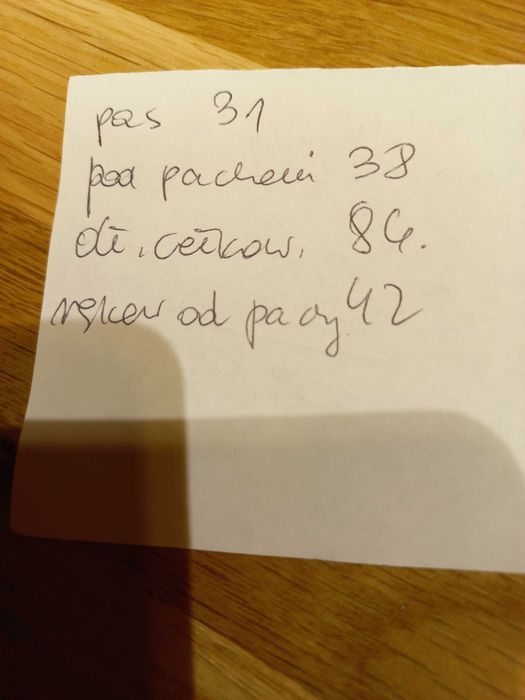 pas 31
pod pachami 38
dł. całkow. 84.
rękaw od pachy 42